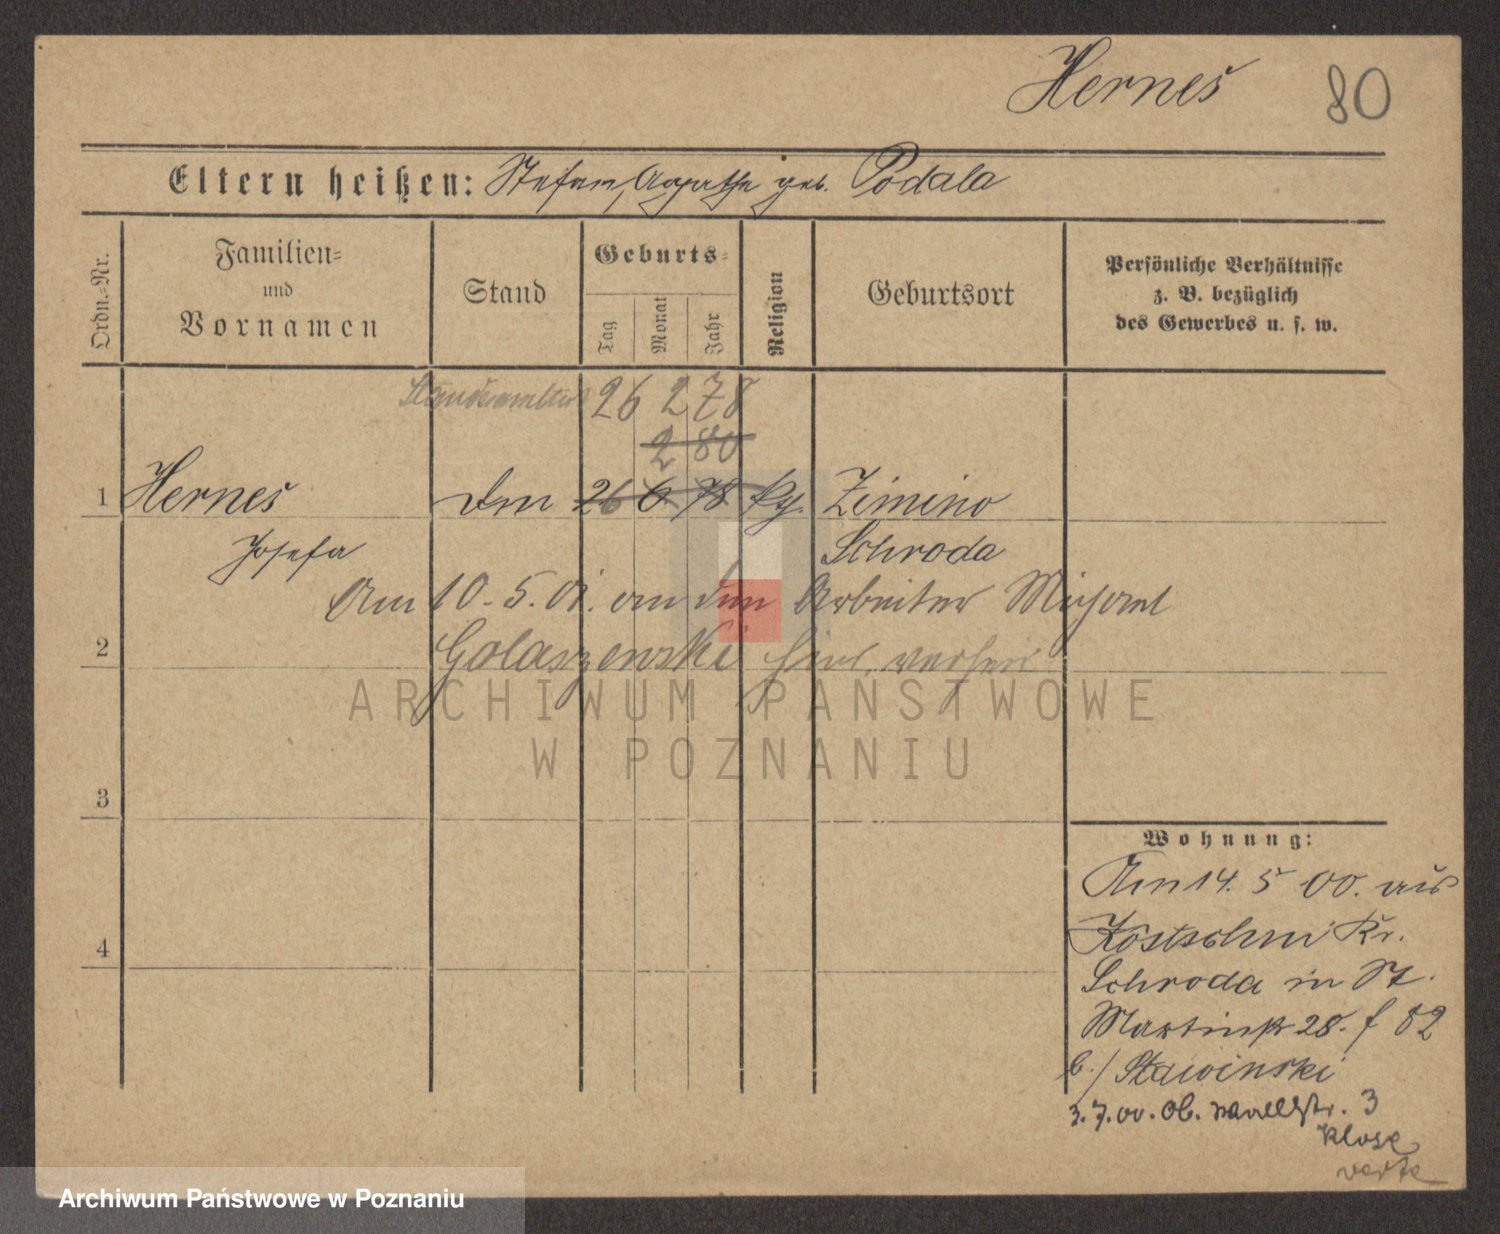 Hernes 80
Eltern heißen: Stefan, Agathe geb. Podala
Ordn.-Nr.
Familien-
und
Vornamen
Stand
Geburts-
Tag
Monat
Jahr
Religion
Geburtsort
Persönliche Verhältnisse
z. B. bezüglich
des Gewerbes u. s. w.
26 2 78
2 80
1 Hernes 26 6 78 kg. Zimino
Josefa Schroda
Am 10. 5. 01. an den Arbeiter Michael
2 Golaszewski hier verheir
3
4
Wohnung:
Am 14. 5 00. aus
Kostschin Kr.
Schroda in St.
Martinstr 28. f 82
b./ Stawinski
3. 7. 00. Ob. Wallstr. 3
Klose
verte
ARCHIWUM PAŃSTWOWE
W POZNANIU
Archiwum Państwowe w Poznaniu